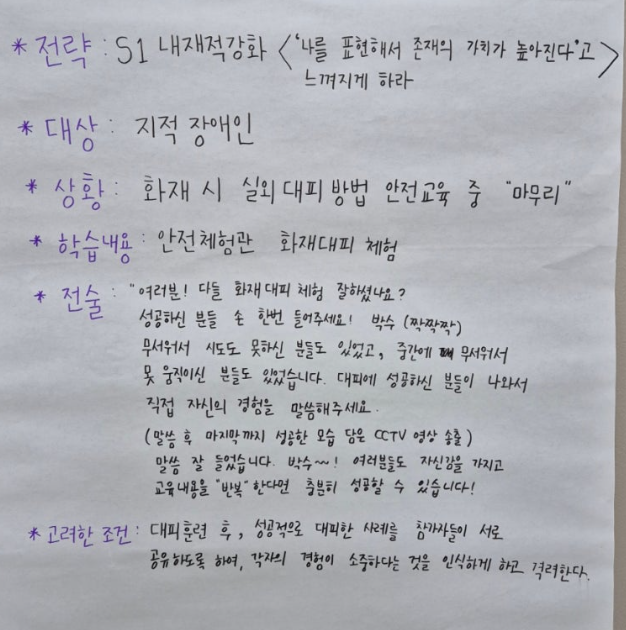 * 전략 : S1 내재적강화 <'나를 표현해서 존재의 가치가 높아진다'고
느껴지게 하라>
* 대상 : 지적 장애인
* 상황 : 화재 시 실외 대피 방법 안전교육 중 "마무리"
* 학습내용 : 안전체험관 화재대피 체험
* 전술 : "여러분! 다들 화재 대피 체험 잘하셨나요?
성공하신 분들 손 한번 들어주세요! 박수 (짝짝짝)
무서워서 시도도 못하신 분들도 있었고, 중간에 무서워서
못 움직이신 분들도 있었습니다. 대피에 성공하신 분들이 나와서
직접 자신의 경험을 말씀해주세요.
(말씀 후 마지막까지 성공한 모습 담은 CCTV 영상 송출)
말씀 잘 들었습니다. 박수~~! 여러분들도 자신감을 가지고
교육내용을 "반복" 한다면 충분히 성공할 수 있습니다!
* 고려한 조건 : 대피훈련 후, 성공적으로 대피한 사례를 참가자들이 서로
공유하도록 하여, 각자의 경험이 소중하다는 것을 인식하게 하고 격려한다.